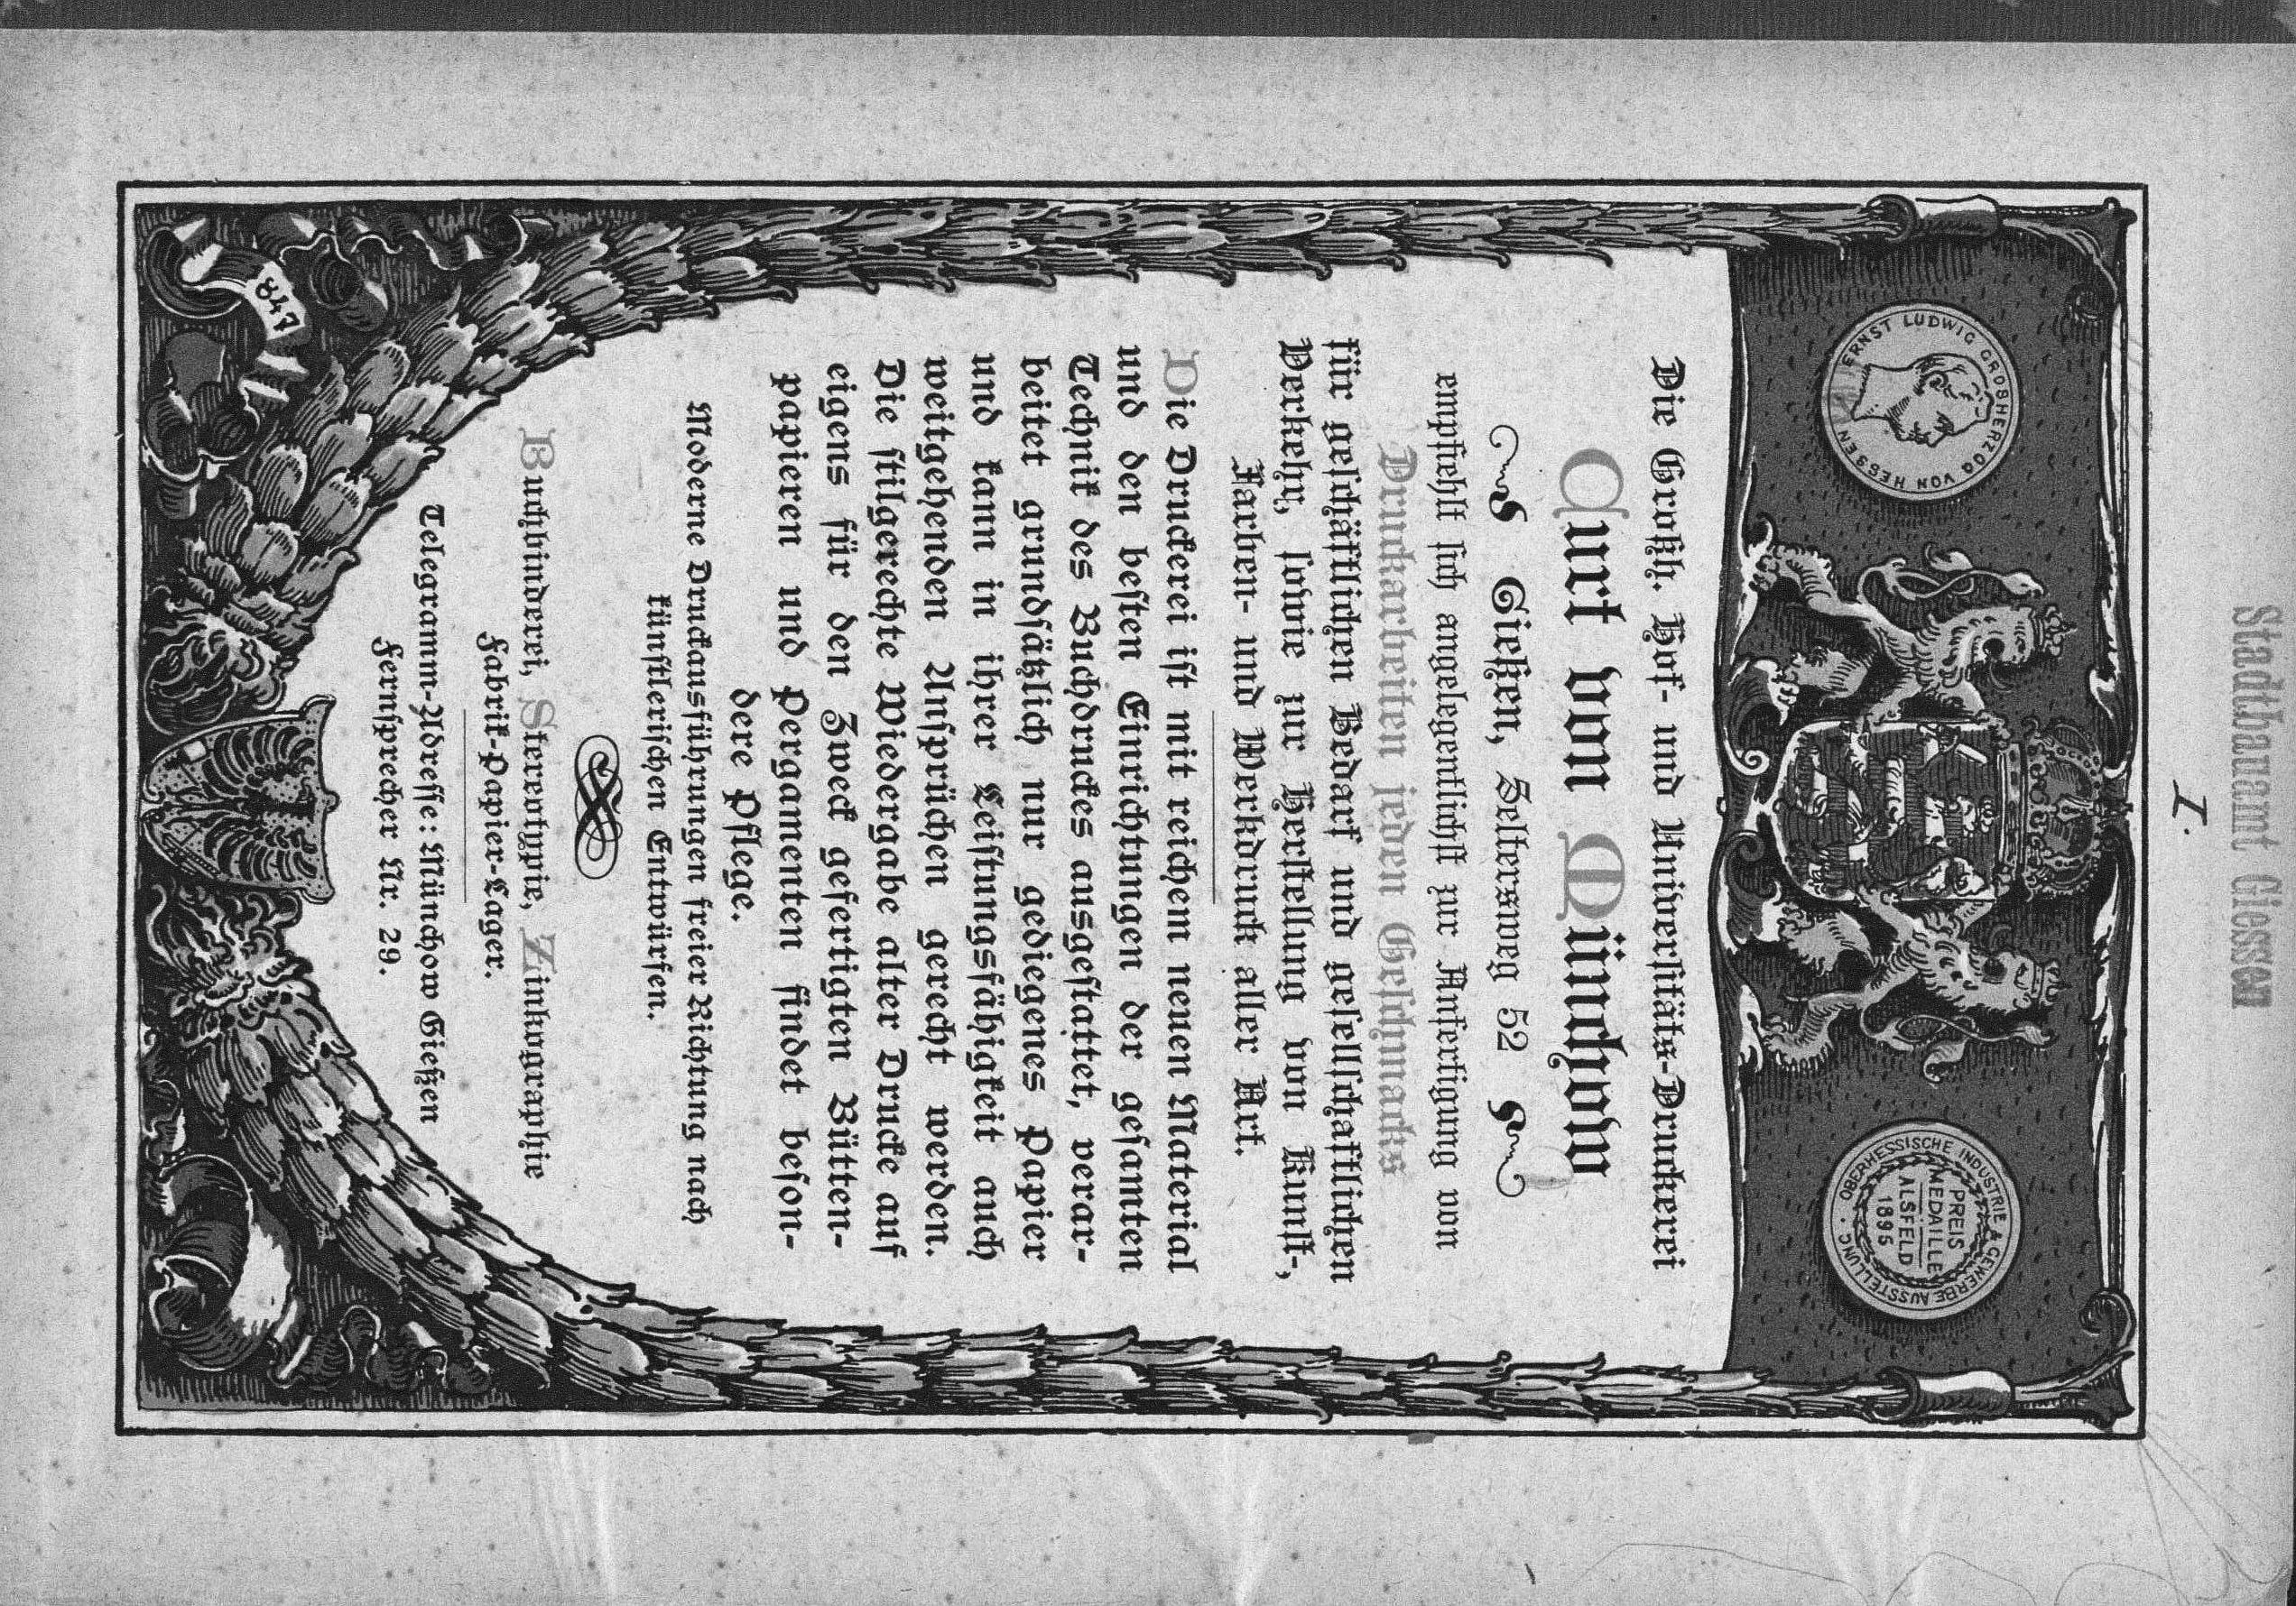 Stadtbauamt Giessen
I.
ERNST LUDWIG GROSHERZOG VON HESSEN
OBERHESSISCHE INDUSTRIE & GEWERBE AUSSTELLUNG.
PREIS
MEDAILLE
ALSFELD
1895
Die Großh. Hof- und Universitäts-Druckerei
Curt von Münchow
Gießen, Seltersweg 52
empfiehlt sich angelegentlichst zur Anfertigung von
Druckarbeiten jeden Geschmacks
für geschäftlichen Bedarf und gesellschaftlichen
Verkehr, sowie zur Herstellung von Kunst-,
Farben- und Werkdruck aller Art.
Die Druckerei ist mit reichem neuen Material
und den besten Einrichtungen der gesamten
Technik des Buchdruckes ausgestattet, verar-
beitet grundsätzlich nur gediegenes Papier
und kann in ihrer Leistungsfähigkeit auch
weitgehenden Ansprüchen gerecht werden.
Die stilgerechte Wiedergabe alter Drucke auf
eigens für den Zweck gefertigten Bütten-
papieren und Pergamenten findet beson-
dere Pflege.
Moderne Druckausführungen freier Richtung nach
künstlerischen Entwürfen.
Buchbinderei, Stereotypie, Zinkographie
Fabrik-Papier-Lager.
Telegramm-Adresse: Münchow Gießen
Fernsprecher Nr. 29.